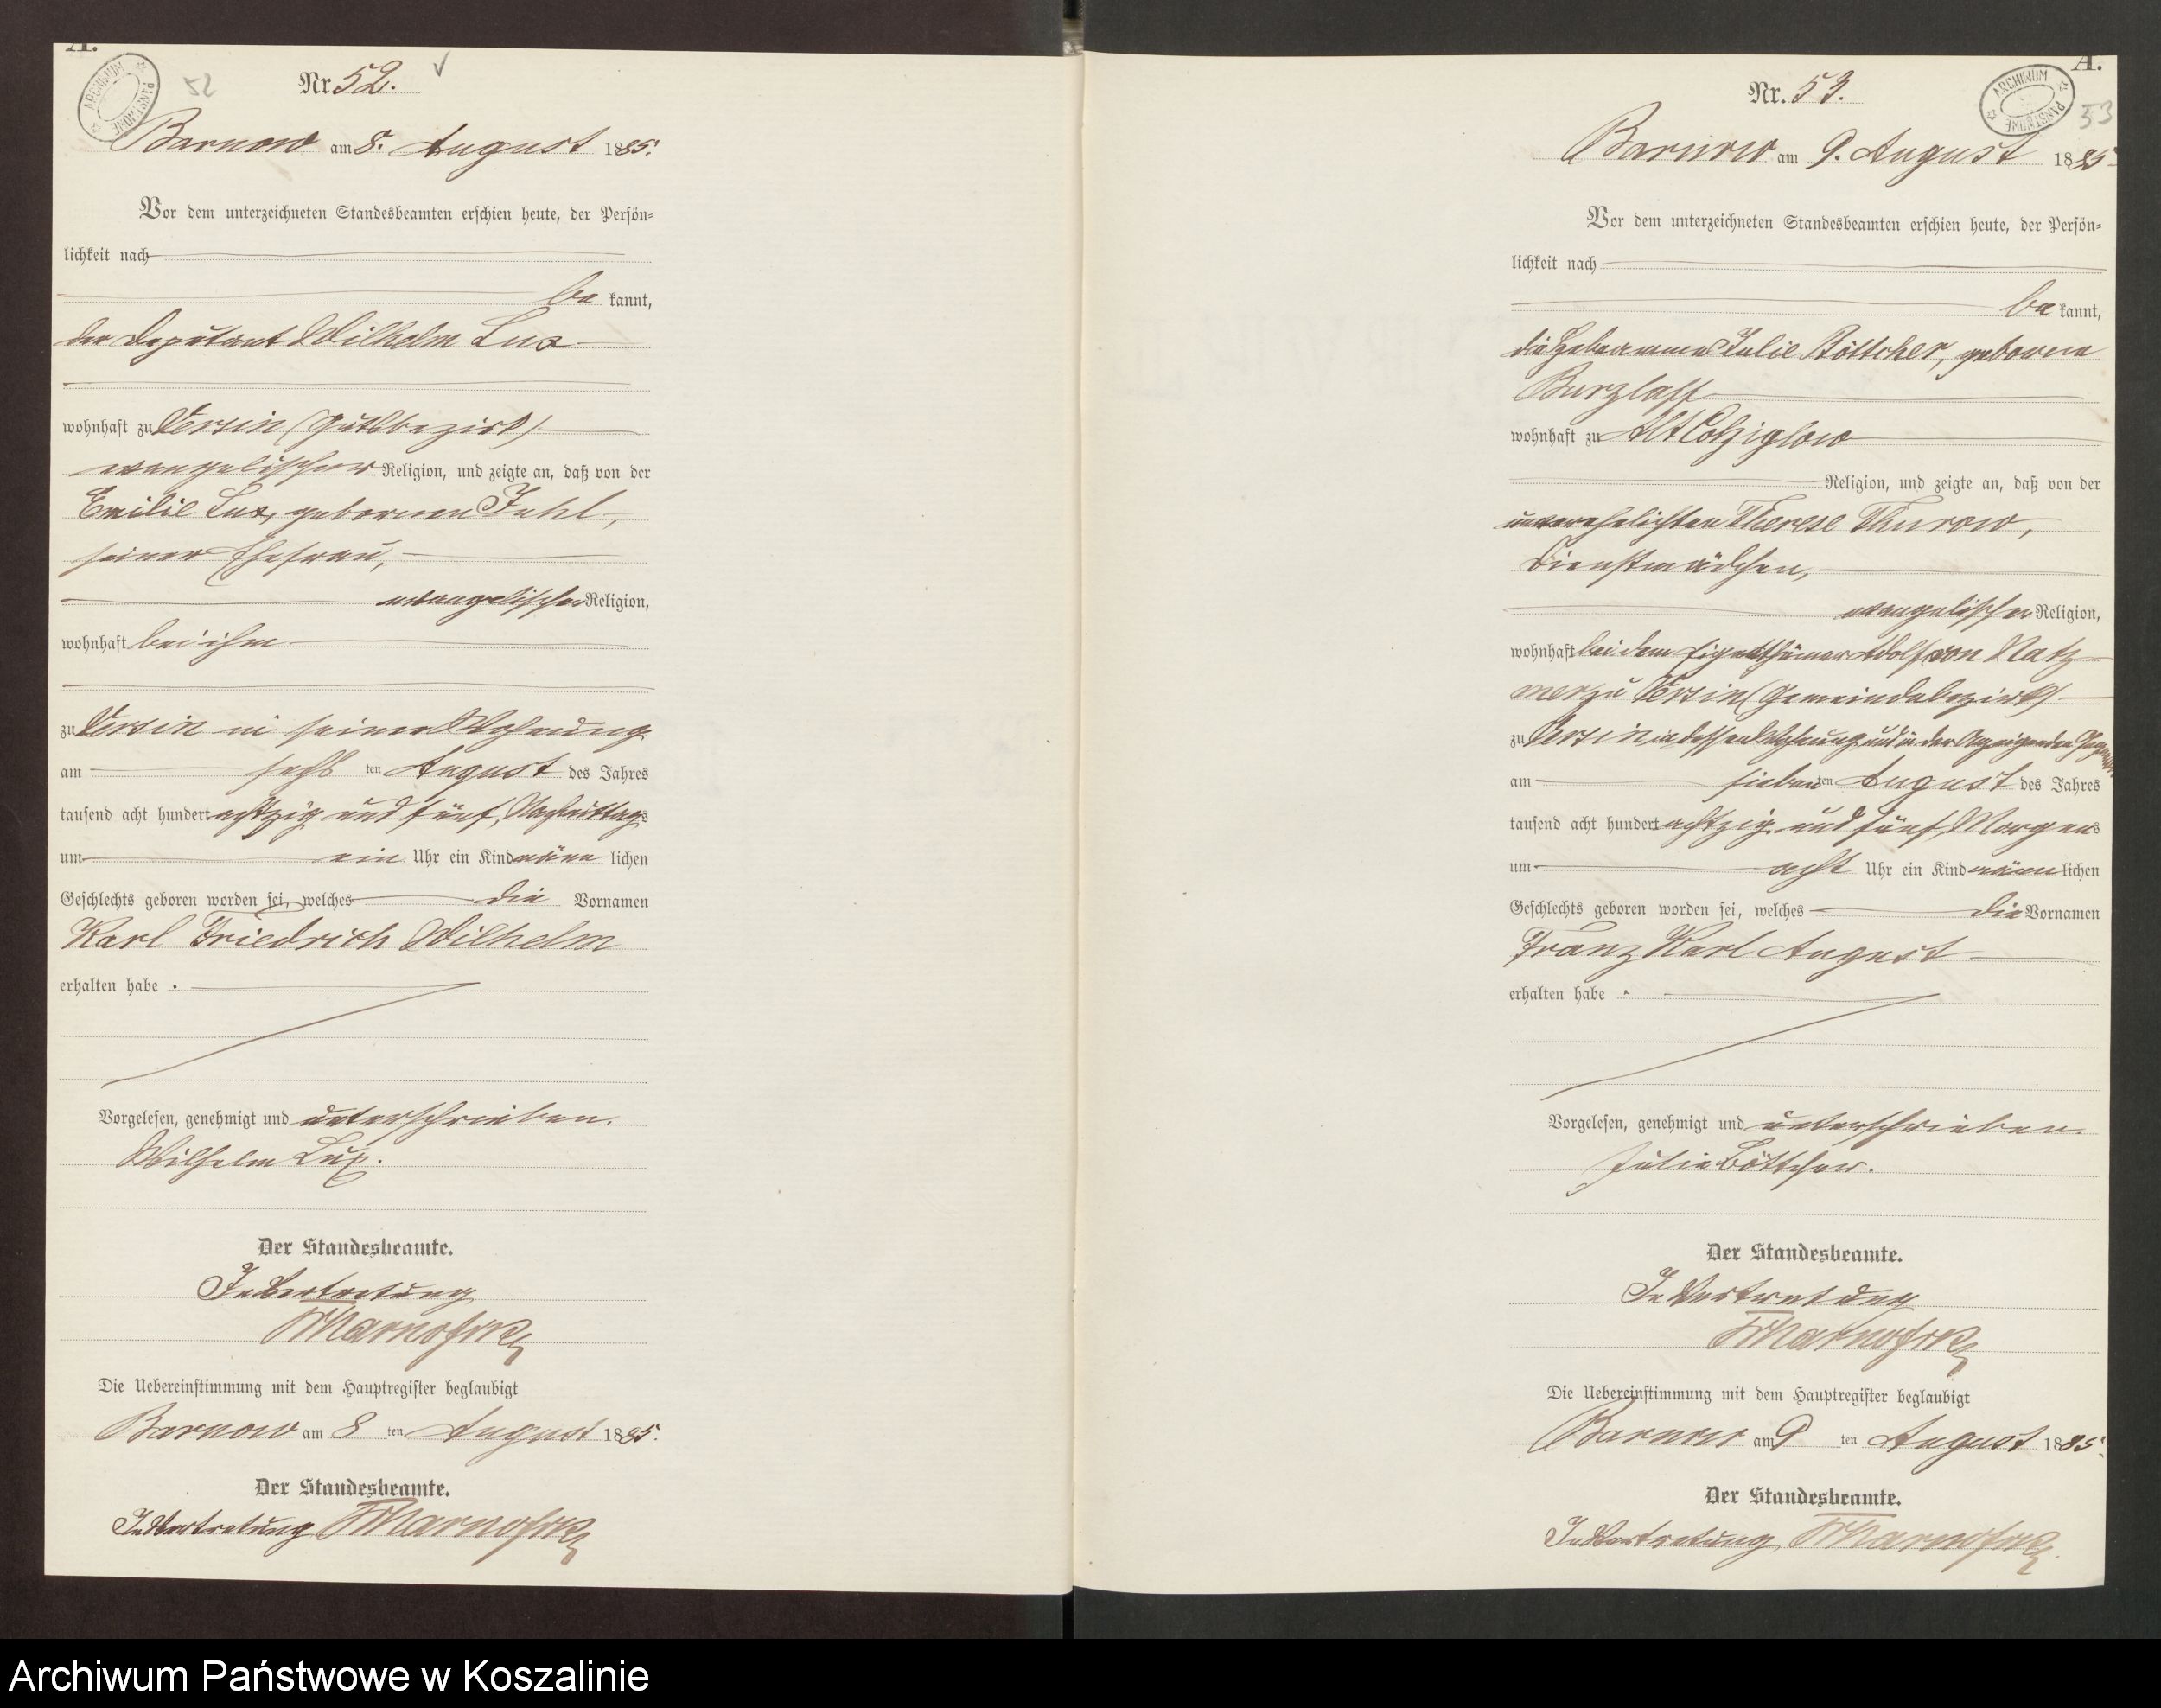 A.
ARCHIWUM PAŃSTWOWE
52
Nr 52.
Barnow am 8. August 1885.
Vor dem unterzeichneten Standesbeamten erschien heute, der Persön=
lichkeit nach
be kannt,
der Deputant Wilhelm Lux
wohnhaft zu Versin (Gutsbezirk)
evangelischer Religion, und zeigte an, daß von der
Emilie Lux, geborenen
seiner Ehefrau,
evangelischer Religion,
wohnhaft bei ihm
zu Versin in seiner Wohnung
am sechs ten August des Jahres
tausend acht hundert achtzig und fünf, Nachmittags
um ein Uhr ein Kind männ lichen
Geschlechts geboren worden sei, welches die Vornamen
Karl Friedrich Wilhelm
erhalten habe .
Vorgelesen, genehmigt und unterschrieben.
Wilhelm Lux.
Der Standesbeamte.
In Vertretung
Die Uebereinstimmung mit dem Hauptregister beglaubigt
Barnow am 8 ten August 1885.
Der Standesbeamte.
In Vertretung
A.
ARCHIWUM PAŃSTWOWE
53
Nr. 53.
Barnow am 9. August 1885
Vor dem unterzeichneten Standesbeamten erschien heute, der Persön=
lichkeit nach
be kannt,
die Hebeamme Julie Böttcher, geborene
Burzlaff
wohnhaft zu Alt Colziglow
Religion, und zeigte an, daß von der
unverehelichten Therese Thurow,
Dienstmädchen,
evangelischer Religion,
wohnhaft bei dem Eigenthümer Adolf von Natz
mer zu Versin (Gemeindebezirk)
zu Versin in dessen Wohnung und in der Anzeigenden Gegenwart
am sieben ten August des Jahres
tausend acht hundert achtzig und fünf, Morgens
um acht Uhr ein Kind männ lichen
Geschlechts geboren worden sei, welches die Vornamen
Franz Karl August
erhalten habe .
Vorgelesen, genehmigt und unterschrieben.
Julie Böttcher.
Der Standesbeamte.
In Vertretung
Die Uebereinstimmung mit dem Hauptregister beglaubigt
Barnow am 9 ten August 1885.
Der Standesbeamte.
In Vertretung
Archiwum Państwowe w Koszalinie